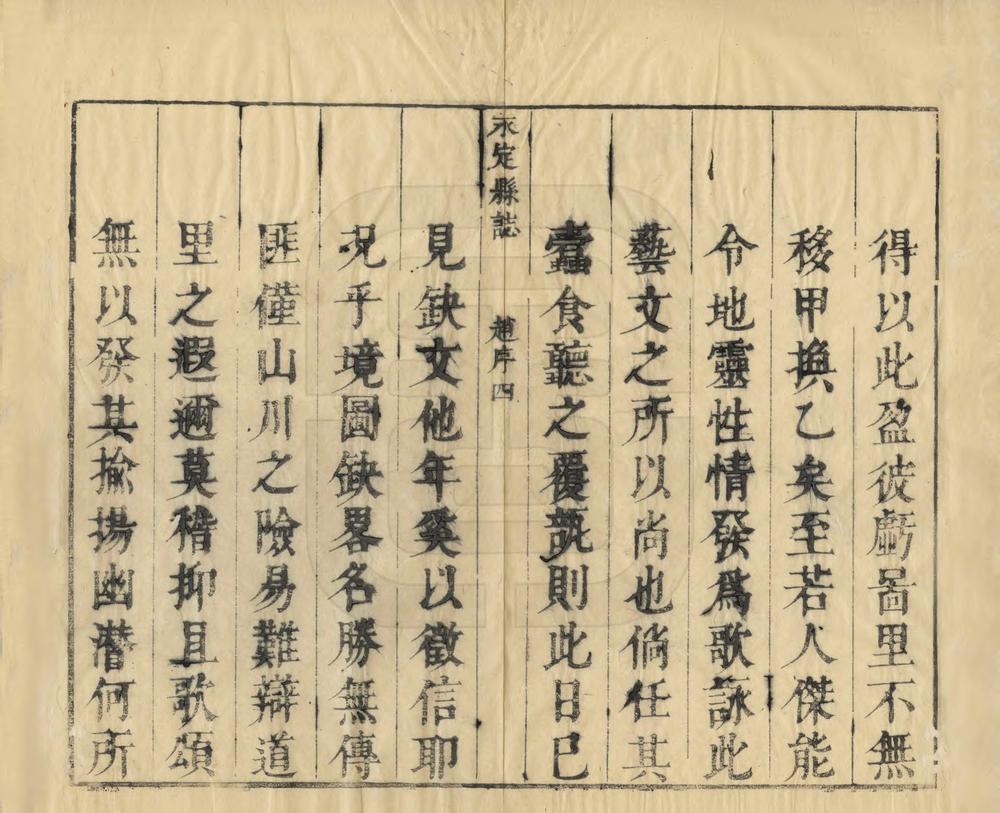 得以此盈彼虧啚里不無
移甲換乙矣至若人傑能
令地靈性情發爲歌詠此
藝文之所以尚也倘任其
蠹食聽之覆瓿則此日已
永定縣誌
趙序四
見缺文他年奚以徵信耶
况乎境圖缺畧名勝無傳
匪僅山川之險易難辯道
里之遐邇莫稽抑且歌頌
無以發其揄揚幽潛何所